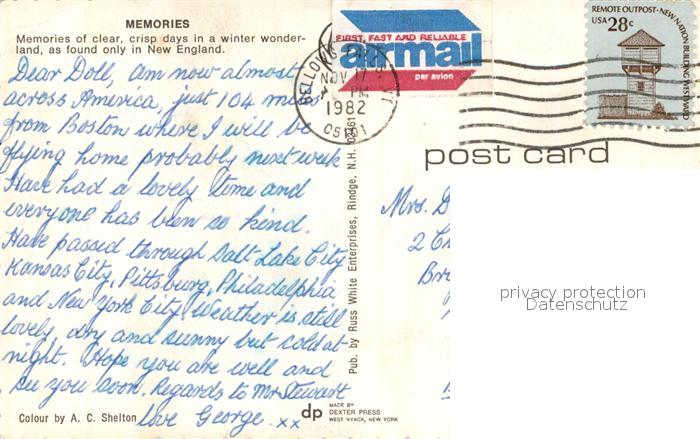 MEMORIES
Memories of clear, crisp days in a winter wonder-
land, as found only in New England.
Dear Doll, am now almost
across America, just 104 miles
from Boston where I will be
flying home probably next week
Have had a lovely time and
everyone has been so kind.
Have passed through Salt Lake City
Kansas City, Pittsburg, Philadelphia
and New York City. Weather is still
lovely, dry and sunny but cold at
night. Hope you are well and
see you soon. Regards to Mr Stewart
love George. xx
Colour by A. C. Shelton
Pub. by Russ White Enterprises, Rindge, N.H. 03461
dp
MADE BY
DEXTER PRESS
WEST NYACK, NEW YORK
FIRST, FAST AND RELIABLE
airmail
par avion
NOV 17
PM
1982
05101
REMOTE OUTPOST·NEW NATION BUILDING WESTWARD
USA 28c
post card
Mrs. D
2
privacy protection
Datenschutz